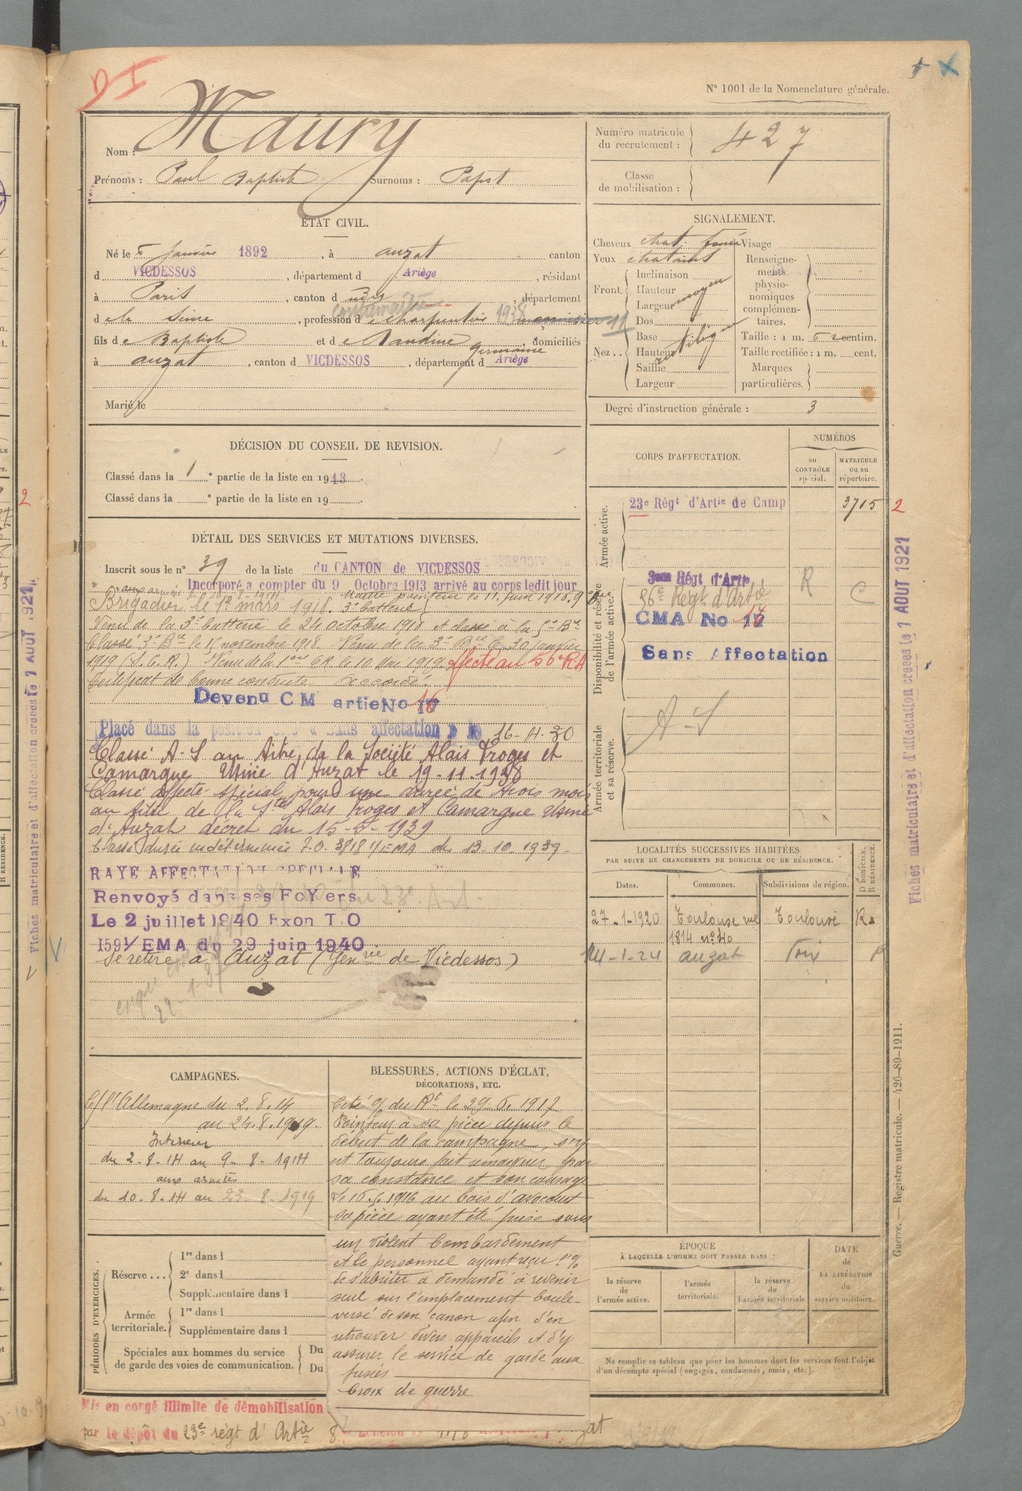 DI
N° 1001 de la Nomenclature générale.
Nom : Maury
Prénoms : Paul Baptiste Surnoms : Papst
Numéro matricule du recrutement : 427
Classe de mobilisation :
ÉTAT CIVIL.
Né le 5 Janvier 1892, à Auzat canton
d VICDESSOS, département d Ariège, résidant
à Paris, canton d udit, département
d e la Seine, profession de charpentier 1938
fils de Baptiste et de Naudine Germaine domiciliés
à Auzat, canton d VICDESSOS, département d Ariège
Marié le
SIGNALEMENT.
Cheveux chat. foncé Visage
Yeux chatains
Front. Inclinaison
Hauteur moyen
Largeur
Nez.. Dos
Base
Hauteur
Saillie
Largeur
Renseignements physionomiques complémentaires.
Taille : 1 m. centim.
Taille rectifiée : 1 m. cent.
Marques particulières.
Degré d'instruction générale : 3
DÉCISION DU CONSEIL DE REVISION.
Classé dans la 1e partie de la liste en 1913.
Classé dans la e partie de la liste en 19
CORPS D'AFFECTATION.
NUMÉROS
au CONTRÔLE spécial.
MATRICULE ou au répertoire.
Armée active.
23e Régt d'Artie de Camp 3715 2
Disponibilité et réserve de l'armée active.
Régt d'Artie
56e Régt d'Artie R C
CMA No
Sans Affectation
Armée territoriale et sa réserve.
A-S
DÉTAIL DES SERVICES ET MUTATIONS DIVERSES.
Inscrit sous le n° 39 de la liste du CANTON de VICDESSOS
Incorporé a compter du 9 Octobre 1913 arrivé au corps ledit jour
Maitre pointeur le 11 Juin 1915.
Brigadier le 1e mars 1918. 3e batterie
Venu de la 3e batterie le 24 octobre 1918 et classé à la
Classé 3e Bie le 15 novembre 1918. Venu de la 3e Bie le 30 janvier
1919 (S.C.R.) Venu de la le 10 1919 affecté au 56e RA
Certificat de bonne conduite accordé.
Devenu CM artie No 16
Placé dans la position « Sans affectation » 16-4-30
Classé A-S au titre de la Société Alais Froges et
Camargue Usine d'Auzat le 19-11-1938
Classé affecté spécial pour une durée de trois mois
au titre de la Sté Alais Froges et Camargue Usine
d'Auzat décret du 15-5-1939
Classé durée indéterminée I.O. 3818 4/EMA du 13-10-1939-
RAYE AFFECTATION SPECIALE
Renvoyé dans ses FoYers
Le 2 juillet 1940 Exon T.O
1591/EMA du 29 juin 1940
Se retire à Auzat (Genvie de Vicdessos)
LOCALITÉS SUCCESSIVES HABITÉES
PAR SUITE DE CHANGEMENTS DE DOMICILE OU DE RÉSIDENCE.
Dates. Communes. Subdivisions de région. D DOMICILE. R RÉSIDENCE.
27-1-1920 Toulouse rue Toulouse R
1814 n° 40
14-1-24 Auzat Foix R
CAMPAGNES.
C/ l'Allemagne du 2.8.14
au 24.8.1919.
Intérieur
du 2-8-14 au 9-8-1914
aux armées
du 10.8-14 au 23-8-1919
BLESSURES, ACTIONS D'ÉCLAT,
DÉCORATIONS, ETC.
Cité O/ du Rt le 29.6.1917
Pointeur à sa pièce depuis le
début de la campagne, s'y
est toujours fait remarquer par
sa constance et son courage
Le 16.5.1916 au bois d'avocourt
sa pièce ayant été prise sous
un violent bombardement
et le personnel ayant reçu l'O/
de s'abriter a demandé à revenir
seul sur l'emplacement boule-
versé de son canon afin d'en
retrouver divers appareils et d'y
assurer le service de garde aux
fusées
Croix de guerre
PÉRIODES D'EXERCICES.
Réserve... 1re dans l
2e dans l
Supplémentaire dans l
Armée territoriale. 1re dans l
Supplémentaire dans l
Spéciales aux hommes du service de garde des voies de communication. Du
Du
ÉPOQUE
À LAQUELLE L'HOMME DOIT PASSER DANS :
la réserve de l'armée active.
l'armée territoriale.
la réserve de l'armée territoriale
DATE DE LA LIBÉRATION du service militaire.
Ne remplir ce tableau que pour les hommes dont les services font l'objet
d'un décompte spécial (engagés, condamnés, omis, etc.).
Mis en congé illimité de démobilisation
par le dépôt du 23e régt d'Artie
Guerre. — Registre matricule. — 426-89-1911.
Fiches matriculaire et d'affectation créées le 1 AOUT 1921
Fiches matriculaire et d'affectation créées le 1 AOUT 1921